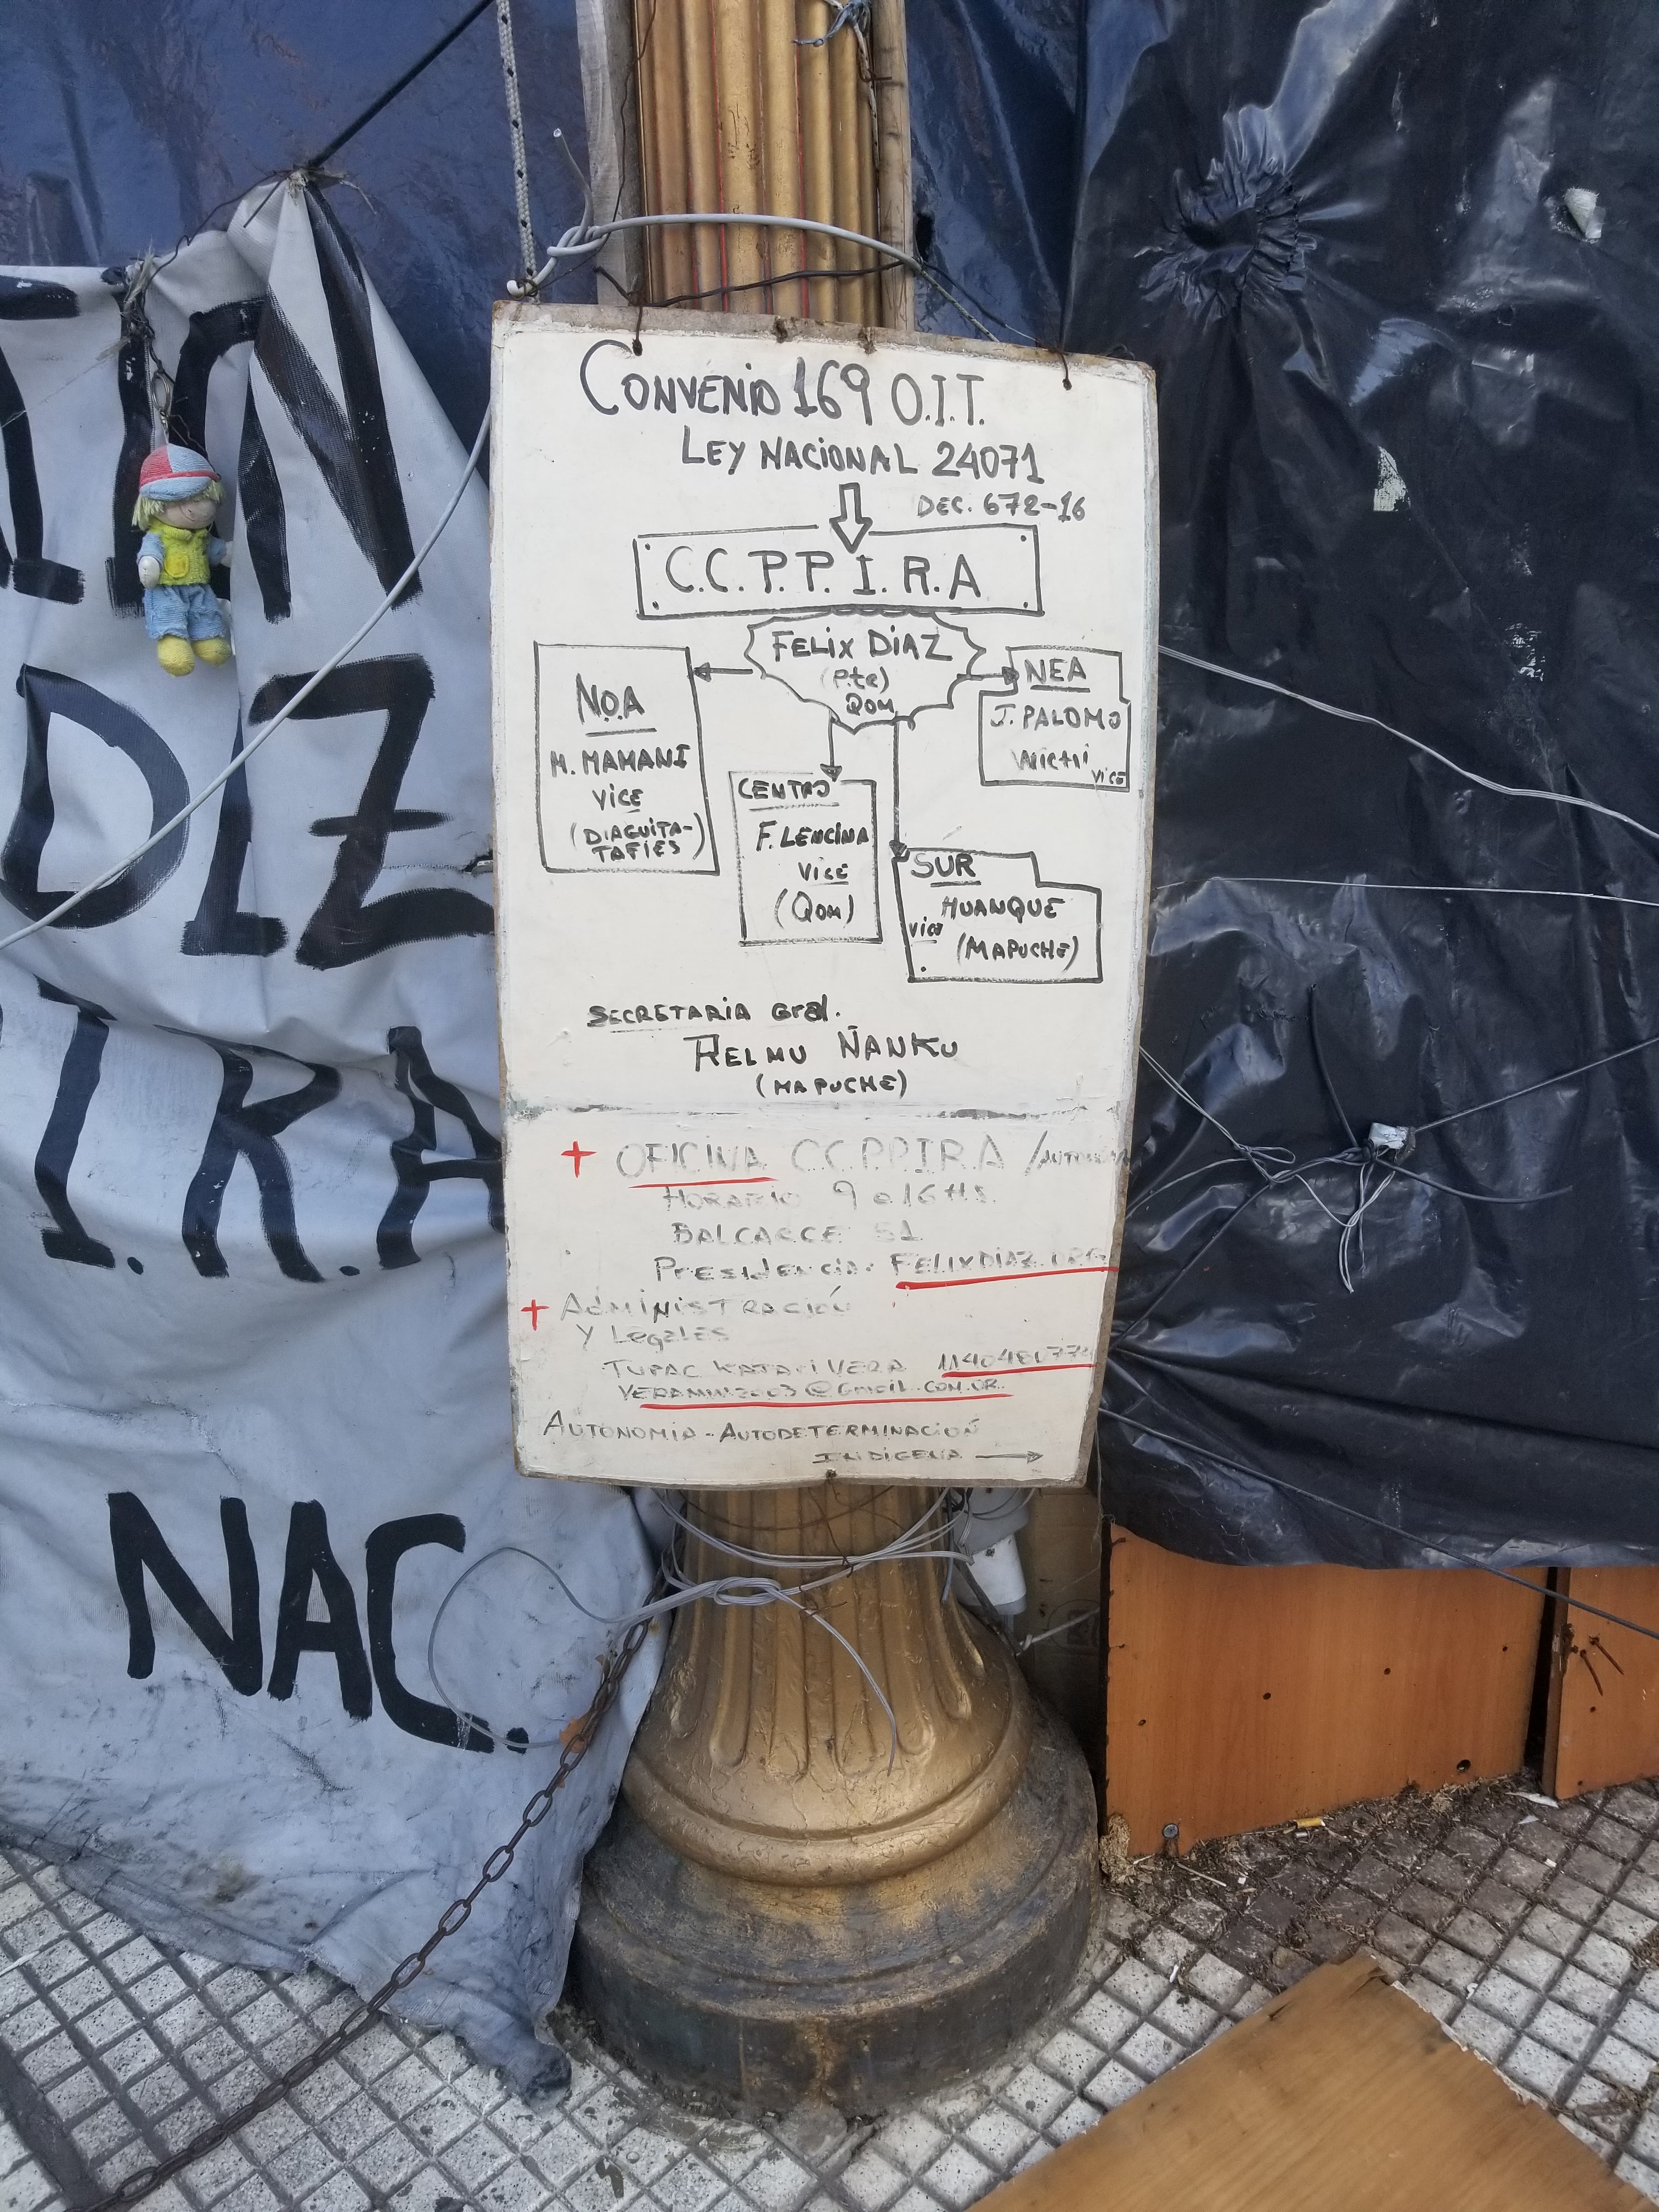 CONVENIO 169 O.I.T.
LEY NACIONAL 24071
DEC. 672-16
C.C.P.P.I.R.A
FELIX DIAZ
(Pte)
Qom
N.O.A
M. MAMANI
VICE
(DIAGUITA-
TAFIES)
NEA
J. PALOMO
WICHI
VICE
CENTRO
F. LENCINA
VICE
(QOM)
SUR
HUANQUE
VICE
(MAPUCHE)
SECRETARIA Gral.
RELMU ÑANKU
(MAPUCHE)
+ OFICINA C.C.P.P.I.R.A
HORARIO 9 a 16 HS.
BALCARCE 51
PRESIDENCIA: FELIXDIAZ.ORG
+ ADMINISTRACIÓN
Y LEGALES
TUPAC KATARI VERA
@GMAIL.COM.AR
AUTONOMIA - AUTODETERMINACIÓN
INDIGENA →
DIZ
I.R.A
NAC.